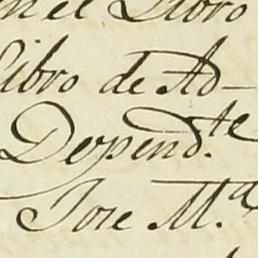 en el Libro
Libro de Ad-
Depend.te
Jose M.a